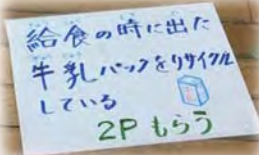 給食の時に出た
牛乳パックをリサイクル
している
2Pもらう